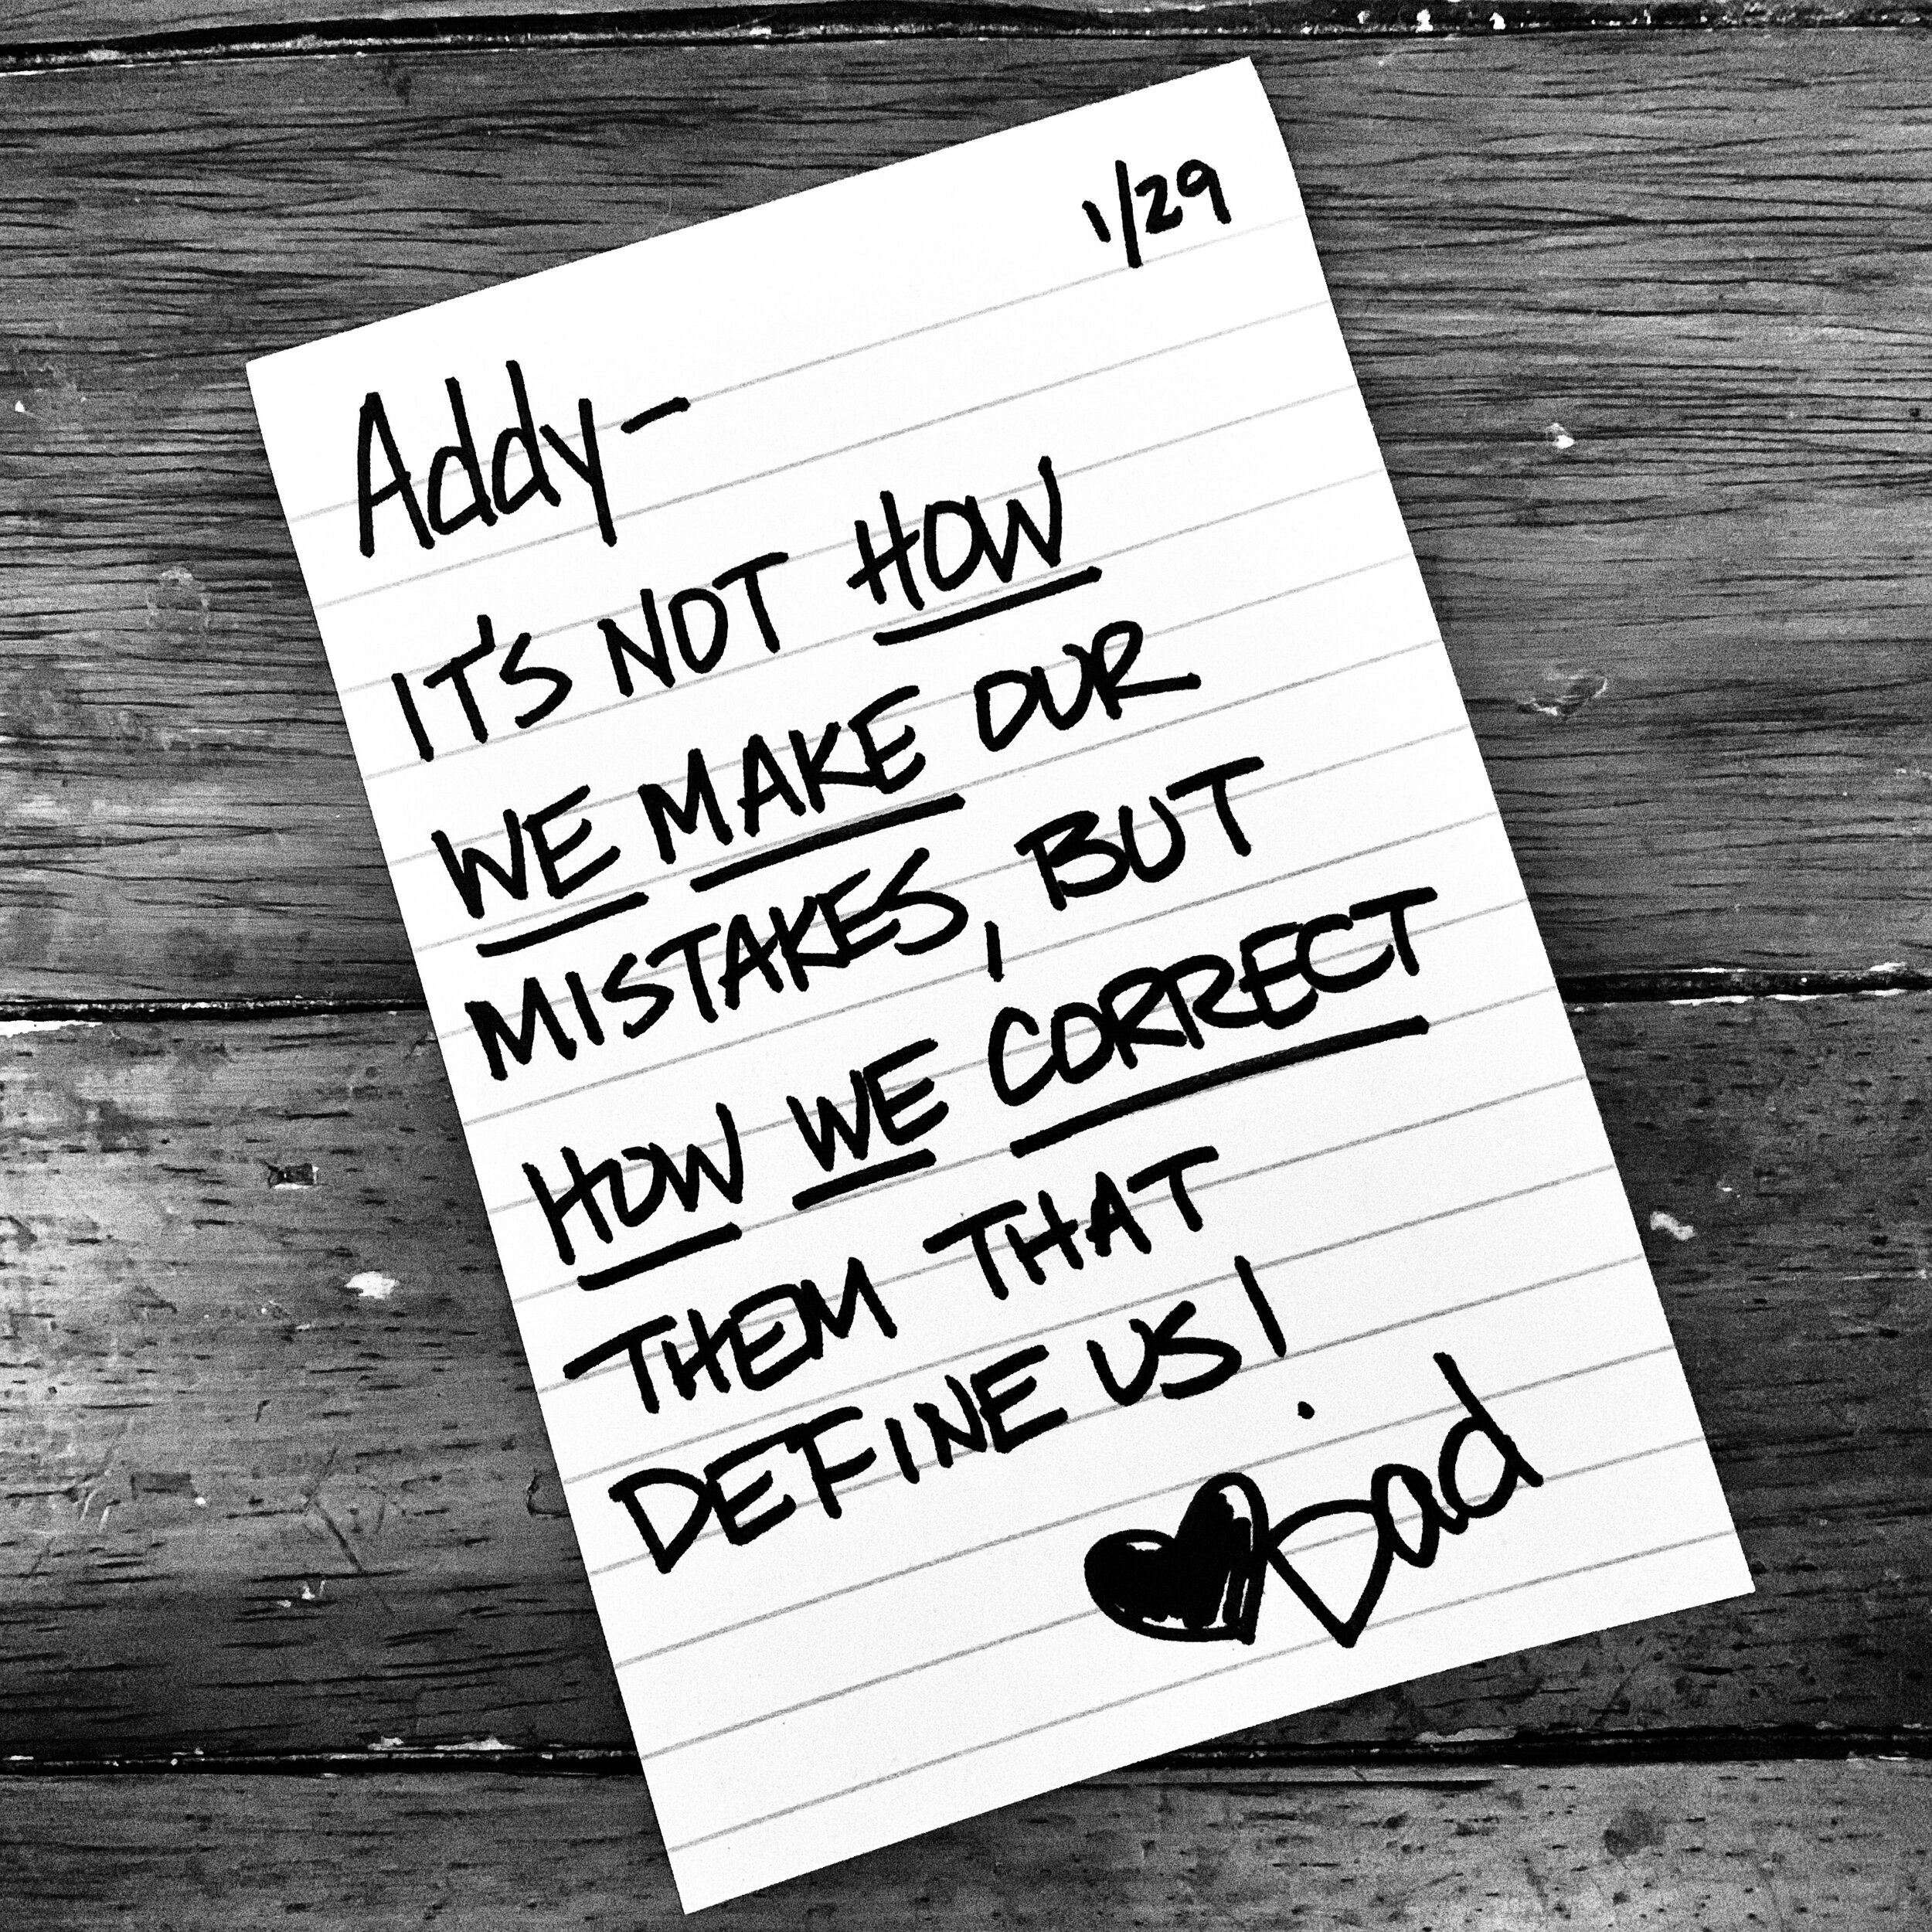 1/29
Addy-
IT'S NOT HOW
WE MAKE OUR
MISTAKES, BUT
HOW WE CORRECT
THEM THAT
DEFINE US!
♥Dad